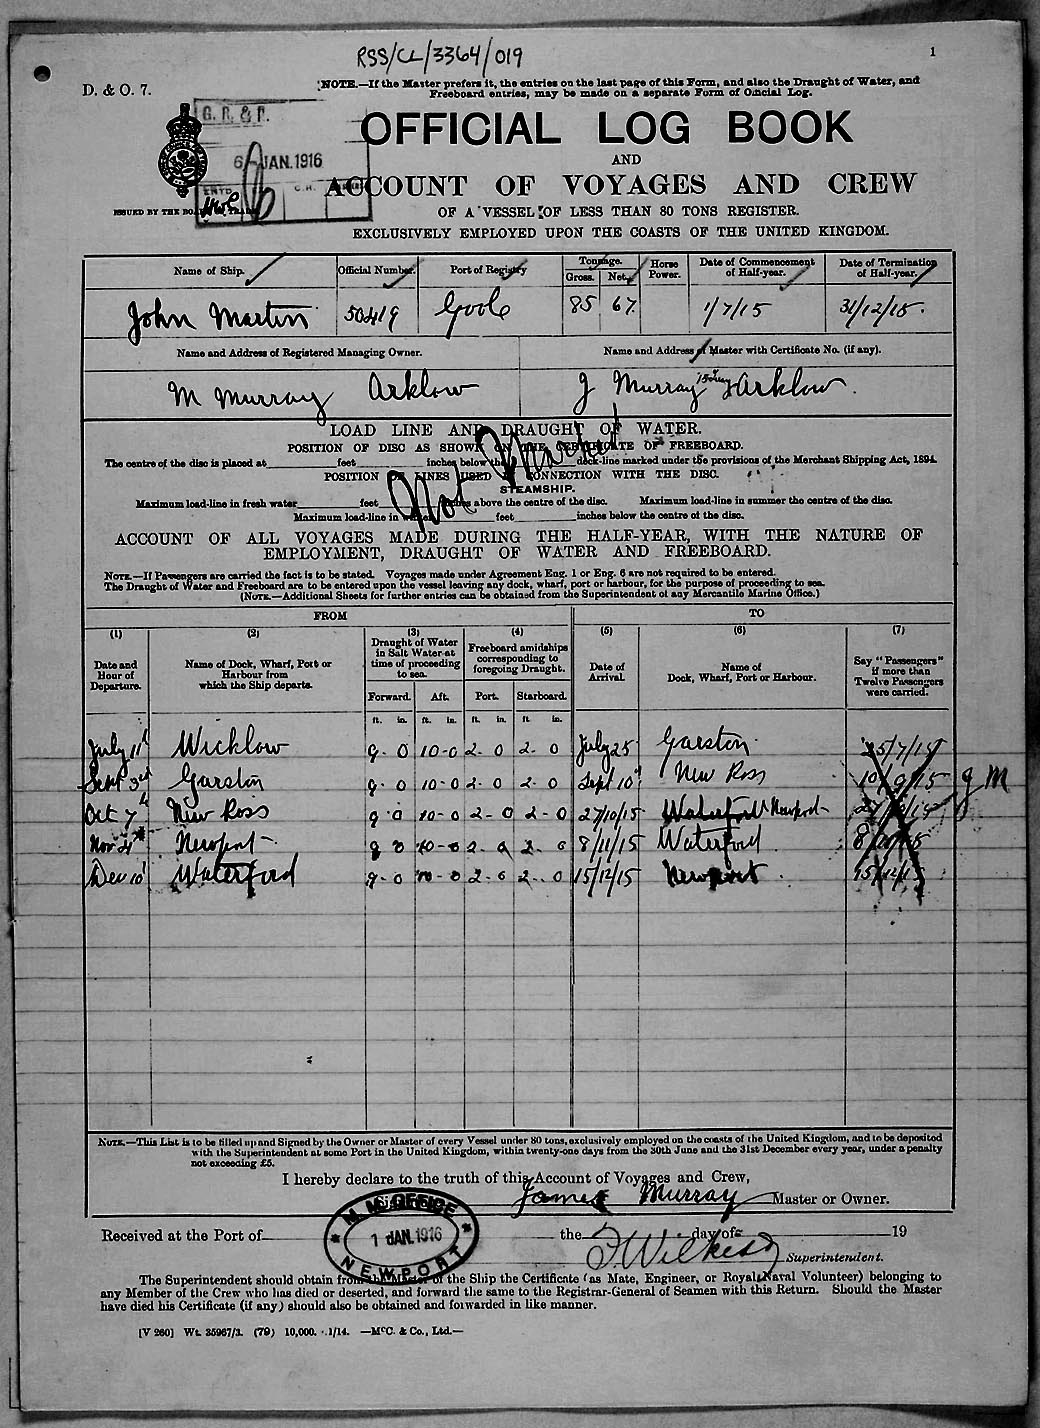 RSS/CL/3364/019
1
D. & O. 7.
NOTE.—If the Master prefers it, the entries on the last page of this Form, and also the Draught of Water, and
Freeboard entries, may be made on a separate Form of Official Log.
G. R. & F.
6 JAN. 1916
OFFICIAL LOG BOOK
AND
ACCOUNT OF VOYAGES AND CREW
ISSUED BY THE BOARD OF TRADE
OF A VESSEL OF LESS THAN 80 TONS REGISTER.
EXCLUSIVELY EMPLOYED UPON THE COASTS OF THE UNITED KINGDOM.
Name of Ship. Official Number. Port of Registry Tonnage. Gross. Net. Horse Power. Date of Commencement of Half-year. Date of Termination of Half-year.
John Martin 50419 Goole 85 67 1/7/15 31/12/15.
Name and Address of Registered Managing Owner. Name and Address of Master with Certificate No. (if any).
M Murray Arklow J Murray Arklow.
LOAD LINE AND DRAUGHT OF WATER.
POSITION OF DISC AS SHOWN ON THE CERTIFICATE OF FREEBOARD.
The centre of the disc is placed at feet inches below the deck-line marked under the provisions of the Merchant Shipping Act, 1894.
POSITION OF LINES USED IN CONNECTION WITH THE DISC.
Not Marked
STEAMSHIP.
Maximum load-line in fresh water feet inches above the centre of the disc. Maximum load-line in summer the centre of the disc.
Maximum load-line in winter feet inches below the centre of the disc.
ACCOUNT OF ALL VOYAGES MADE DURING THE HALF-YEAR, WITH THE NATURE OF
EMPLOYMENT, DRAUGHT OF WATER AND FREEBOARD.
NOTE.—If Passengers are carried the fact is to be stated. Voyages made under Agreement Eng. 1 or Eng. 6 are not required to be entered.
The Draught of Water and Freeboard are to be entered upon the vessel leaving any dock, wharf, port or harbour, for the purpose of proceeding to sea.
(NOTE.—Additional Sheets for further entries can be obtained from the Superintendent of any Mercantile Marine Office.)
FROM TO
(1) (2) (3) (4) (5) (6) (7)
Date and Hour of Departure. Name of Dock, Wharf, Port or Harbour from which the Ship departs. Draught of Water in Salt Water at time of proceeding to sea. Freeboard amidships corresponding to foregoing Draught. Date of Arrival. Name of Dock, Wharf, Port or Harbour. Say "Passengers" if more than Twelve Passengers were carried.
Forward. Aft. Port. Starboard.
ft. in. ft. in. ft. in. ft. in.
July 11th Wicklow 9-0 10-0 2-0 2-0 July 25 Garston 25/7/15
Sept 3rd Garston 9-0 10-0 2-0 2-0 Sept 10th New Ross 10/9/15 J M
Oct 7th New Ross 9-0 10-0 2-0 2-0 27/10/15 Waterford Newport
Nov 4th Newport 9-0 10-0 2-0 2-0 8/11/15 Waterford
Dec 10th Waterford 9-0 10-0 2-0 2-0 15/12/15 Newport 15/12/15
NOTE.—This List is to be filled up and Signed by the Owner or Master of every Vessel under 80 tons, exclusively employed on the coasts of the United Kingdom, and to be deposited
with the Superintendent at some Port in the United Kingdom, within twenty-one days from the 30th June and the 31st December every year, under a penalty
not exceeding £5.
I hereby declare to the truth of this Account of Voyages and Crew,
James Murray Master or Owner.
M. M. OFFICE
1 JAN. 1916
NEWPORT
Received at the Port of the day of 19
Superintendent.
The Superintendent should obtain from the Master of the Ship the Certificate (as Mate, Engineer, or Royal Naval Volunteer) belonging to
any Member of the Crew who has died or deserted, and forward the same to the Registrar-General of Seamen with this Return. Should the Master
have died his Certificate (if any) should also be obtained and forwarded in like manner.
[V 260] Wt. 35967/3. (79) 10,000. 1/14. —McC. & Co., Ltd.—